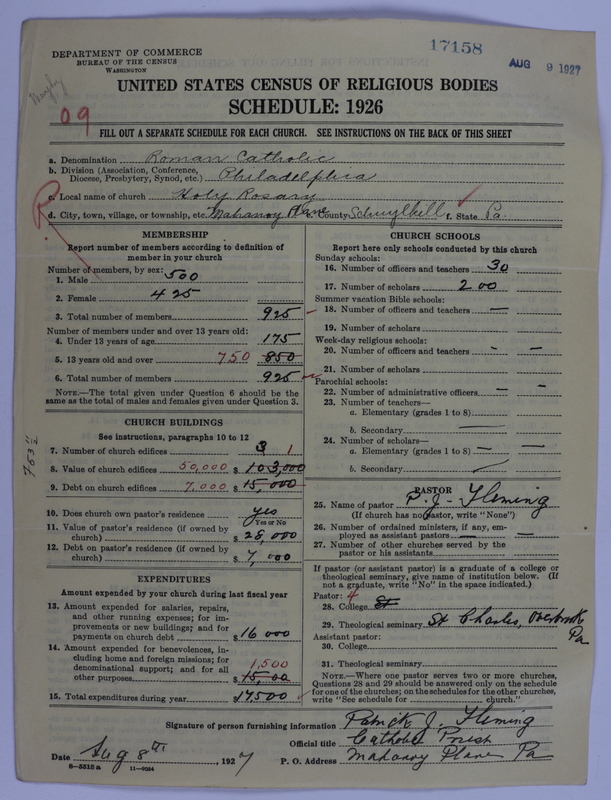 17158
AUG 9 1927
DEPARTMENT OF COMMERCE
BUREAU OF THE CENSUS
WASHINGTON
UNITED STATES CENSUS OF RELIGIOUS BODIES
SCHEDULE: 1926
09
FILL OUT A SEPARATE SCHEDULE FOR EACH CHURCH. SEE INSTRUCTIONS ON THE BACK OF THIS SHEET
a. Denomination Roman Catholic
b. Division (Association, Conference, Diocese, Presbytery, Synod, etc.) Philadelphia
c. Local name of church Holy Rosary
d. City, town, village, or township, etc. Mahanoy Plane e. County Schuylkill f. State Pa.
R.
MEMBERSHIP
Report number of members according to definition of
member in your church
Number of members, by sex:
1. Male 500
2. Female 425
3. Total number of members 925
Number of members under and over 13 years old:
4. Under 13 years of age 175
5. 13 years old and over 750 850
6. Total number of members 925
NOTE.—The total given under Question 6 should be
same as the total of males and females given under Question 3.
CHURCH BUILDINGS
See instructions, paragraphs 10 to 12
7. Number of church edifices 3 1
8. Value of church edifices 50,000 $103,000
9. Debt on church edifices 7,000 $15,000
10. Does church own pastor's residence yes
Yes or No
11. Value of pastor's residence (if owned by
church) $28,000
12. Debt on pastor's residence (if owned by
church) $7,000
EXPENDITURES
Amount expended by your church during last fiscal year
13. Amount expended for salaries, repairs,
and other running expenses; for im-
provements or new buildings; and for
payments on church debt $16000
14. Amount expended for benevolences, in-
cluding home and foreign missions; for
denominational support; and for all
other purposes 1,500 $15,00
15. Total expenditures during year $17500
CHURCH SCHOOLS
Report here only schools conducted by this church
Sunday schools:
16. Number of officers and teachers 30
17. Number of scholars 200
Summer vacation Bible schools:
18. Number of officers and teachers —
19. Number of scholars
Week-day religious schools:
20. Number of officers and teachers - -
21. Number of scholars
Parochial schools:
22. Number of administrative officers - -
23. Number of teachers—
a. Elementary (grades 1 to 8)
b. Secondary —
24. Number of scholars—
a. Elementary (grades 1 to 8) — —
b. Secondary
PASTOR
25. Name of pastor P. J. Fleming
(If church has no pastor, write "None")
26. Number of ordained ministers, if any, em-
ployed as assistant pastors — —
27. Number of other churches served by the
pastor or his assistants
If pastor (or assistant pastor) is a graduate of a college or
theological seminary, give name of institution below. (If
not a graduate, write "No" in the space indicated.)
Pastor: 4
28. College St
29. Theological seminary St Charles, Overbrook
Pa
Assistant pastor:
30. College
31. Theological seminary
NOTE.—Where one pastor serves two or more churches,
Questions 28 and 29 should be answered only on the schedule
for one of the churches; on the schedules for the other churches,
write "See schedule for church."
Signature of person furnishing information Patrick J. Fleming
Official title Catholic Priest
Date Aug 8th 1927 P. O. Address Mahanoy Plane Pa
8—5518a 11—9034